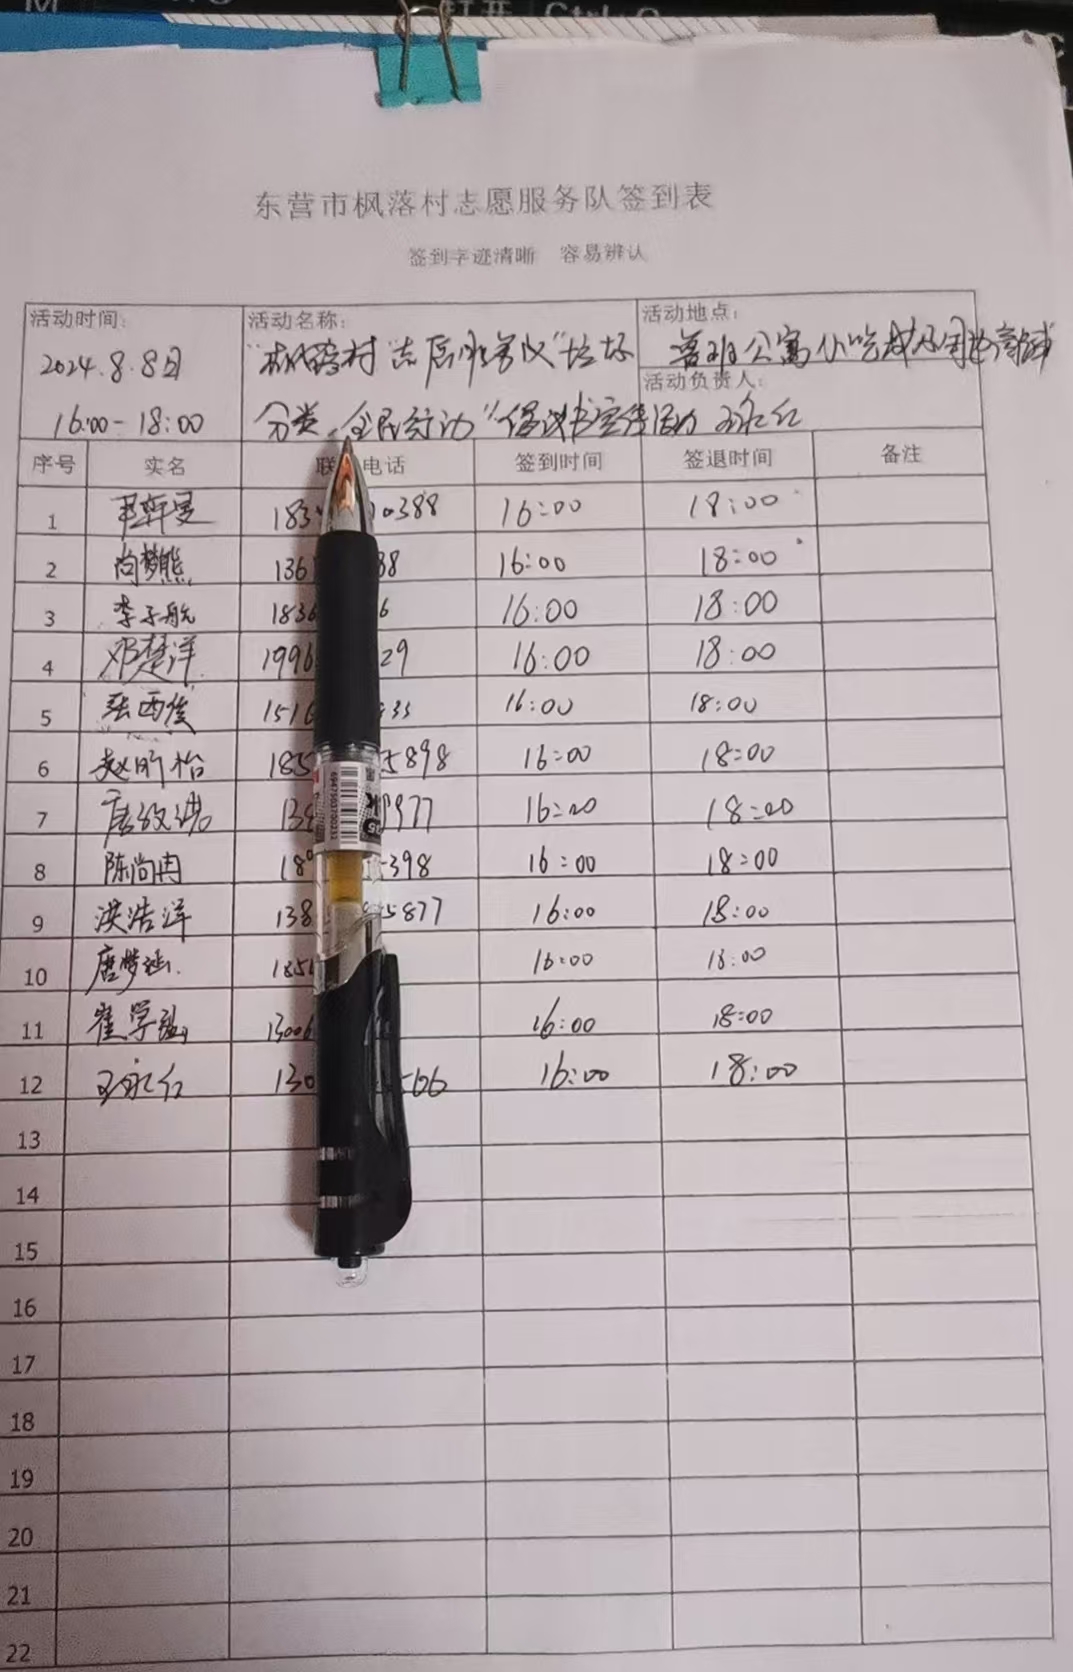 打开 Ctrl+O
东营市枫落村志愿服务队签到表
签到字迹清晰 容易辨认
活动时间: 活动名称: 活动地点:
2024.8.8日 "枫落村"志愿服务队"垃圾 鲁班公寓小吃城及周边商铺
活动负责人:
16:00-18:00 分类 全民行动"倡议书宣传活动 王永红
序号 实名 联 电话 签到时间 签退时间 备注
1 183 0388 16:00 18:00
2 尚梦熊 136 88 16:00 18:00
3 李子航 1836 6 16:00 18:00
4 邓楚洋 1996 29 16:00 18:00
5 张西俊 1516 33 16:00 18:00
6 赵昕怡 185 5898 16:00 18:00
7 唐 13 977 16:00 18:00
8 陈尚冉 18 398 16:00 18:00
9 洪浩洋 138 5877 16:00 18:00
10 唐梦涵 185 16:00 18:00
11 崔学 13006 16:00 18:00
12 王永红 130 566 16:00 18:00
13
14
15
16
17
18
19
20
21
22